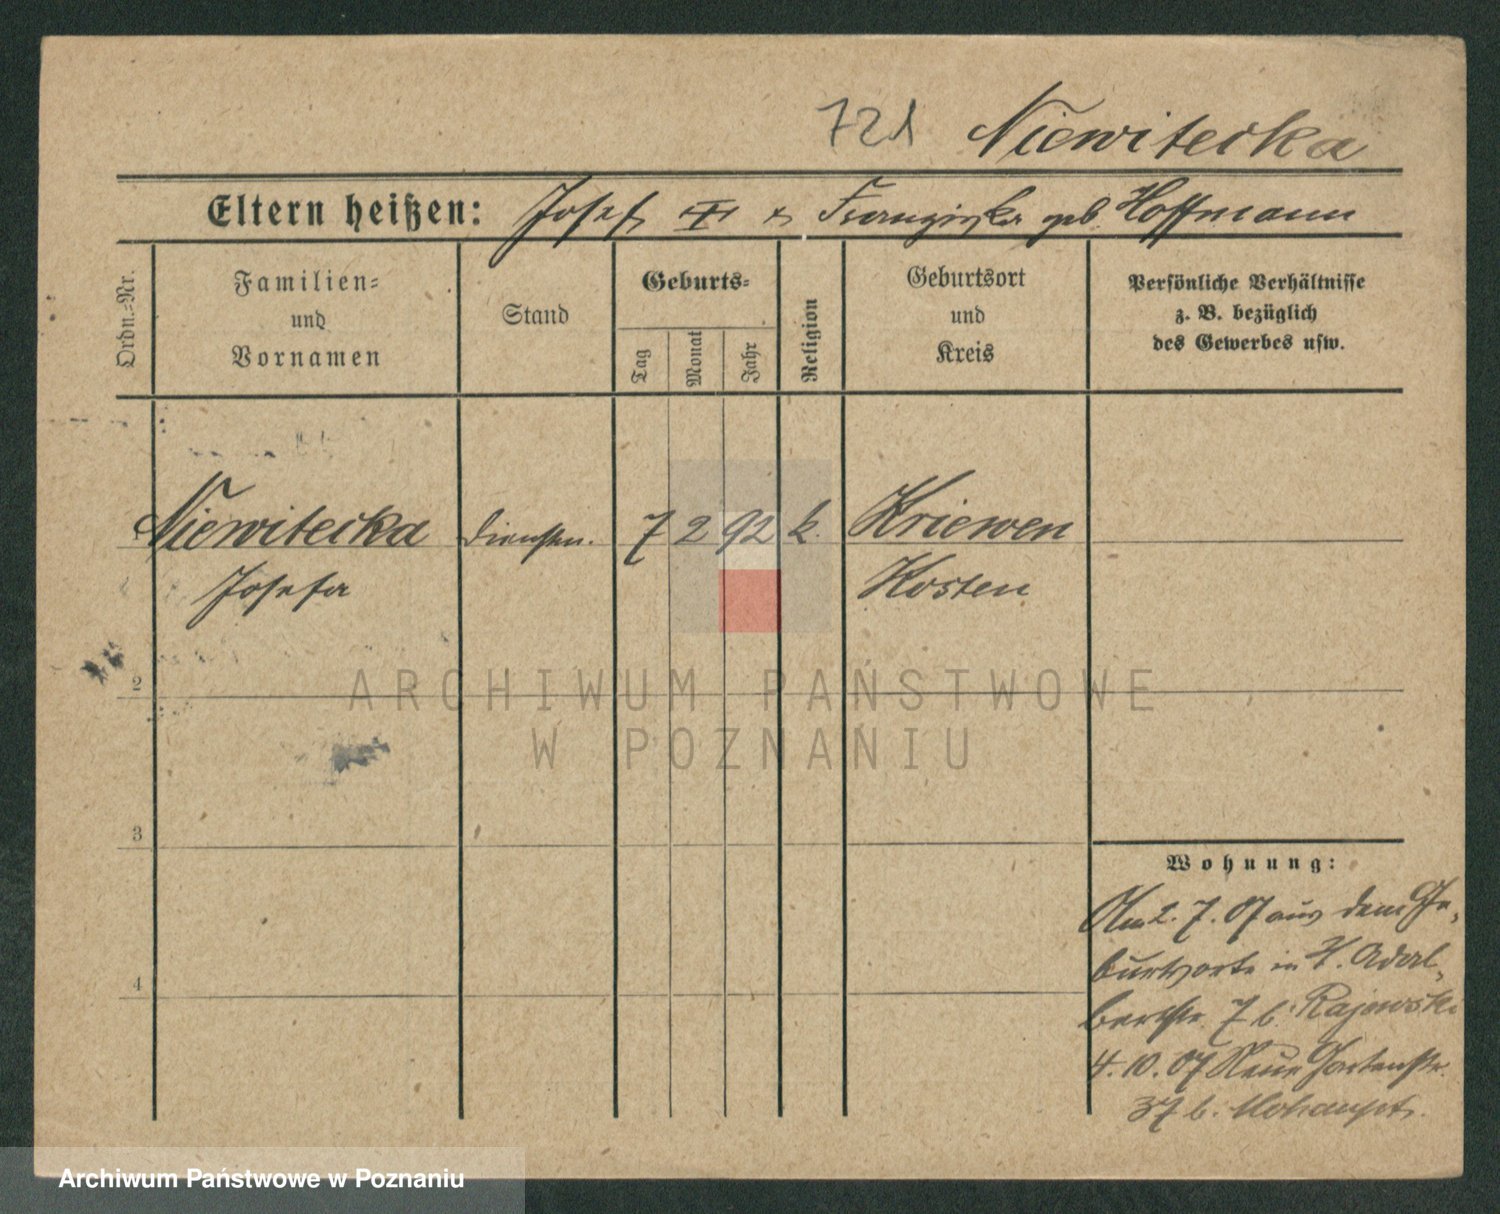 721 Niewitecka
Eltern heißen: Josef III & Franziska geb Hoffmann
Ordn.=Nr.
Familien=
und
Vornamen
Stand
Geburts=
Tag
Monat
Jahr
Religion
Geburtsort
und
Kreis
Persönliche Verhältnisse
z. B. bezüglich
des Gewerbes usw.
Niewitecka dienstm. 7 2 92 k. Kriewen
Josefa Kosten
2
3
4
Wohnung:
Am 2. 7. 07 aus dem Ge-
burtsorte in H. Adal-
bertstr. 7 b. Rajewski
4. 10. 07 Neue Gartenstr.
37 b.
ARCHIWUM PAŃSTWOWE
W POZNANIU
Archiwum Państwowe w Poznaniu